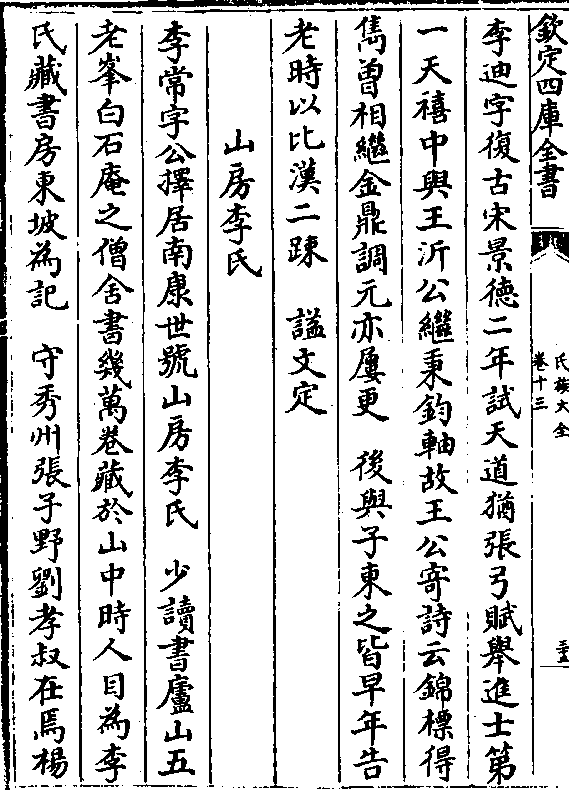 欽定四庫全書
氏族大全
卷十三
三五
李迪字復古宋景德二年試天道猶張弓賦舉進士第
一天禧中與王沂公繼秉鈞軸故王公寄詩云錦標得
雋曽相繼金鼎調元亦屢更　後與子東之皆早年告
老時以比漢二踈　謚文定
山房李氏
李常字公擇居南康世號山房李氏　少讀書廬山五
老峯白石庵之僧舍書幾萬卷藏於山中時人目為李
氏藏書房東坡為記　守秀州張子野劉孝叔在焉楊